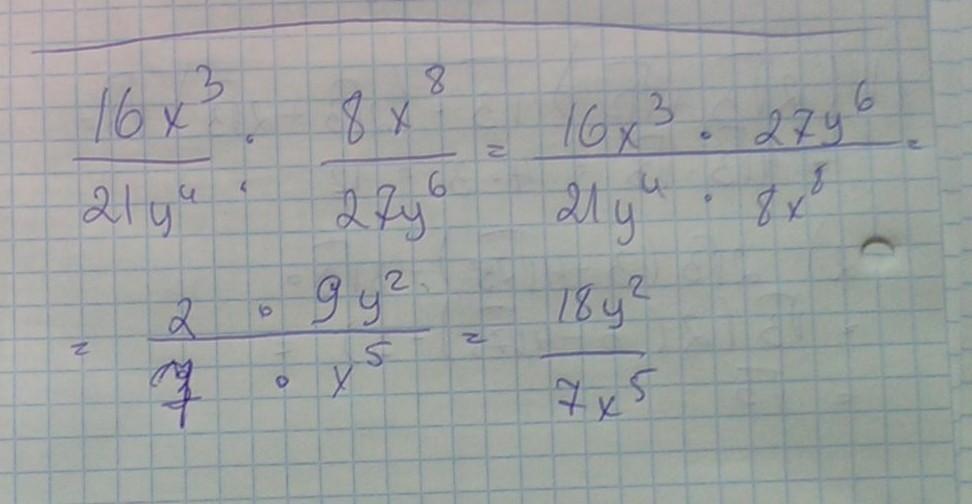 16x³/21y⁴ : 8x⁸/27y⁶ = 16x³ · 27y⁶/21y⁴ · 8x⁸ =
= 2 · 9y²/7 · x⁵ = 18y²/7x⁵